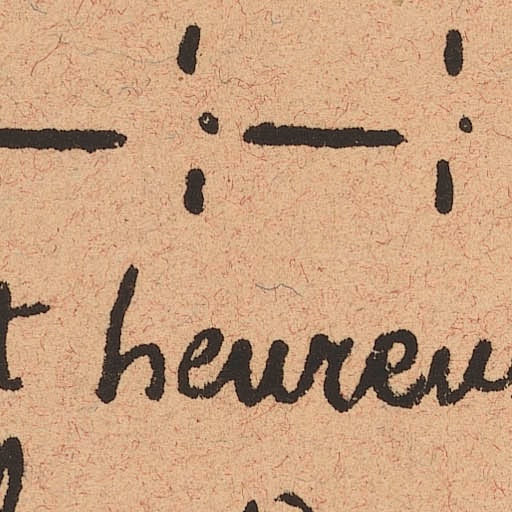 t heureu